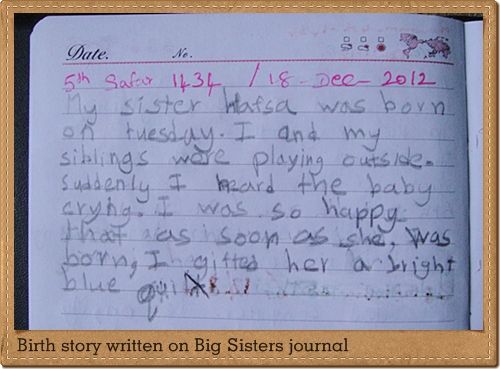 Date. No.
5th Safar 1434 / 18 - Dec - 2012
My sister Hafsa was born
on tuesday. I and my
siblings were playing outside.
Suddenly I heard the baby
crying. I was so happy
that as soon as she, was
born, I gifted her a bright
blue
Birth story written on Big Sisters journal